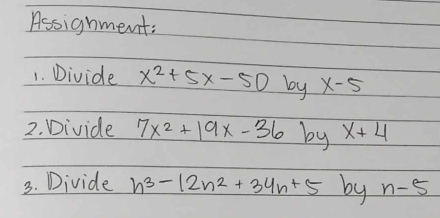 Assignment:
1. Divide x²+5x-50 by x-5
2. Divide 7x²+19x-36 by x+4
3. Divide n³-12n²+34n+5 by n-5